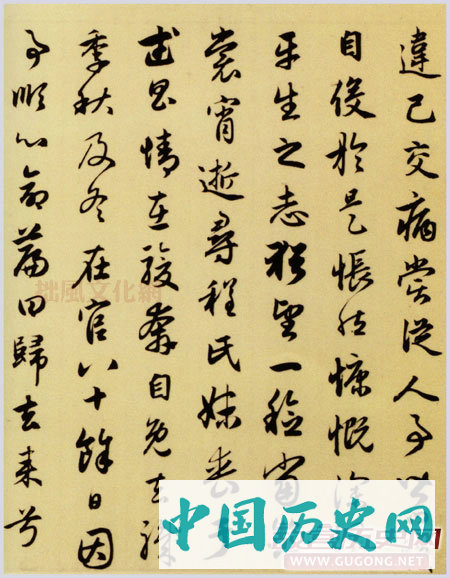 違己交病嘗從人事
自役於是悵然慷慨深
平生之志猶望一稔當
裳宵逝尋程氏妹喪于
武昌情在駿奔自免去職
季秋及冬在官八十餘日因
事順心命篇曰歸去来兮
拙風文化網
中国历史网
WWW.GUGONG.NET